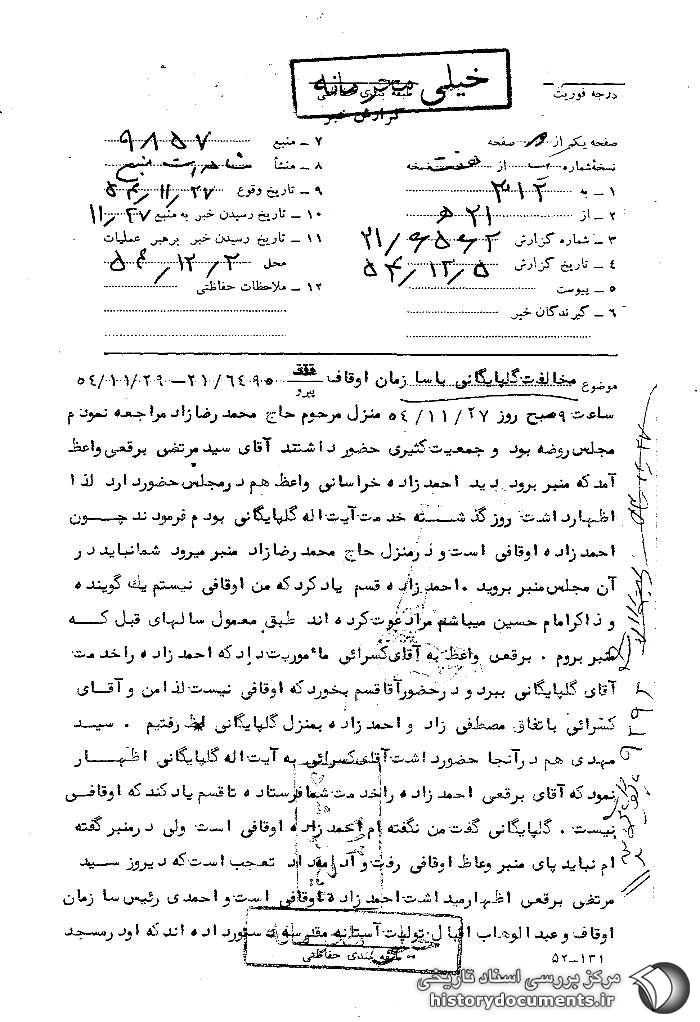 خیلی محرمانه
طبقه بندی حفاظتی
گزارش خبر
درجه فوریت
صفحه یکم از صفحه
نسخه شماره از هفت نسخه
۱ ـ به ۳۱۲
۲ ـ از ۲۱ ه
۳ ـ شماره گزارش
۴ ـ تاریخ گزارش ۵۴/۱۲/۵
۵ ـ پیوست
۶ ـ گیرندگان خبر
۷ ـ منبع ۹۸۵۷
۸ ـ منشأ منبع
۹ ـ تاریخ وقوع ۵۴/۱۱/۲۷
۱۰ ـ تاریخ رسیدن خبر به منبع ۱۱/۲۷
۱۱ ـ تاریخ رسیدن خبر برهبر عملیات
محل ۵۴/۱۲/۲
۱۲ ـ ملاحظات حفاظتی
موضوع مخالفت گلپایگانی با سازمان اوقاف پیرو ۲۱/۶۴۹۵ـ ۵۴/۱۱/۲۹
ساعت ۹ صبح روز ۵۴/۱۱/۲۷ منزل مرحوم حاج محمد رضا زاد مراجعه نمودم
مجلس روضه بود و جمعیت کثیری حضور داشتند آقای سید مرتضی برقعی واعظ
آمد که منبر برود دید احمد زاده خراسانی واعظ هم در مجلس حضور دارد لذا
اظهار داشت روز گذشته خدمت آیت اله گلپایگانی بودم فرمودند چون
احمد زاده اوقافی است و در منزل حاج محمد رضا زاد منبر میرود شما نباید در
آن مجلس منبر بروید . احمد زاده قسم یاد کرد که من اوقافی نیستم یک گوینده
و ذاکر امام حسین میباشم مرا دعوت کرده اند طبق معمول سالهای قبل که
منبر بروم . برقعی واعظ به آقای کسرائی مأموریت داد که احمد زاده را خدمت
آقای گلپایگانی ببرد و در حضور آقا قسم بخورد که اوقافی نیست لذا من و آقای
کسرائی باتفاق مصطفی زاد و احمد زاده بمنزل گلپایگانی رفتیم . سید
مهدی هم در آنجا حضور داشت آقای کسرائی به آیت اله گلپایگانی اظهار
نمود که آقای برقعی احمد زاده را خدمت شما فرستاده تا قسم یاد کند که اوقافی
نیست . گلپایگانی گفت من نگفته ام احمد زاده اوقافی است ولی در منبر گفته
ام نباید پای منبر وعاظ اوقافی رفت و تعجب است که دیروز سید
مرتضی برقعی اظهار میداشت احمد زاده اوقافی است و احمدی رئیس سازمان
اوقاف و عبد الوهاب اقبال تولیت آستانه مقدسه دستور داده اند که او در مسجد
طبقه بندی حفاظتی
۵۲ـ۱۳۱
مرکز بررسی اسناد تاریخی
historydocuments.ir